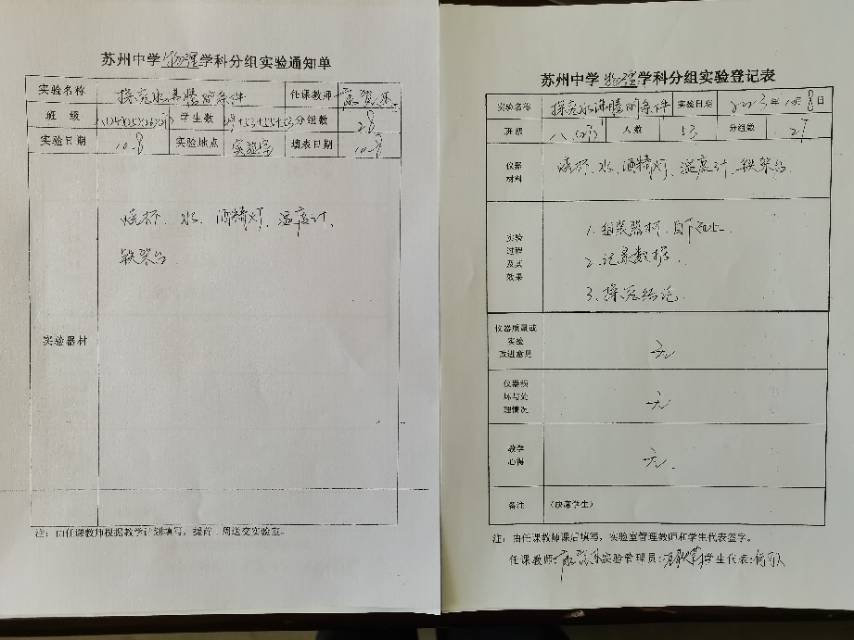 苏州中学物理学科分组实验通知单
实验名称 探究水沸腾的条件 任课教师
班 级 学生数 分组数 28
实验日期 10.8 实验地点 实验室 填表日期
烧杯、水、酒精灯、温度计、
铁架台
实验器材
注:由任课教师根据教学计划填写,提前一周送交实验室。
苏州中学物理学科分组实验登记表
实验名称 探究水沸腾的条件 实验日期 2023年10月8日
班级 人数 53 分组数 27
仪器
材料
烧杯、水、酒精灯、温度计、铁架台
实验
过程
及其
效果
1.组装器材,
2.记录数据.
3.探究结论.
仪器质量或
实验
改进意见
无
仪器损
坏与处
理情况
无
教学
心得
无.
备注 (缺席学生)
注:由任课教师课后填写,实验室管理教师和学生代表签字。
任课教师: 实验管理员: 学生代表: